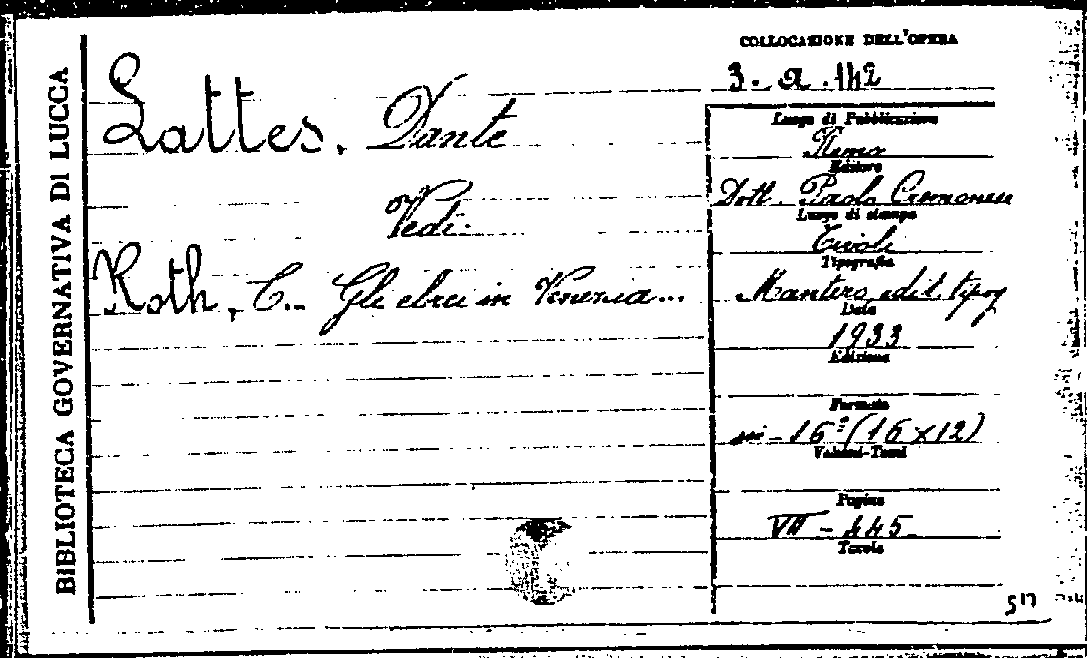 BIBLIOTECA GOVERNATIVA DI LUCCA
Lattes, Dante
Vedi:
Roth, C.. Gli ebrei in Venezia...
COLLOCAZIONE DELL'OPERA
3. a. 142
Luogo di Pubblicazione
Roma
Editore
Dott. Paolo Cremonese
Luogo di stampa
Tivoli
Tipografia
Mantero edit. tipog
Data
1933
Edizione
Formato
in-16º (16x12)
Volumi-Tomi
Pagine
VII - 445
Tavole
517